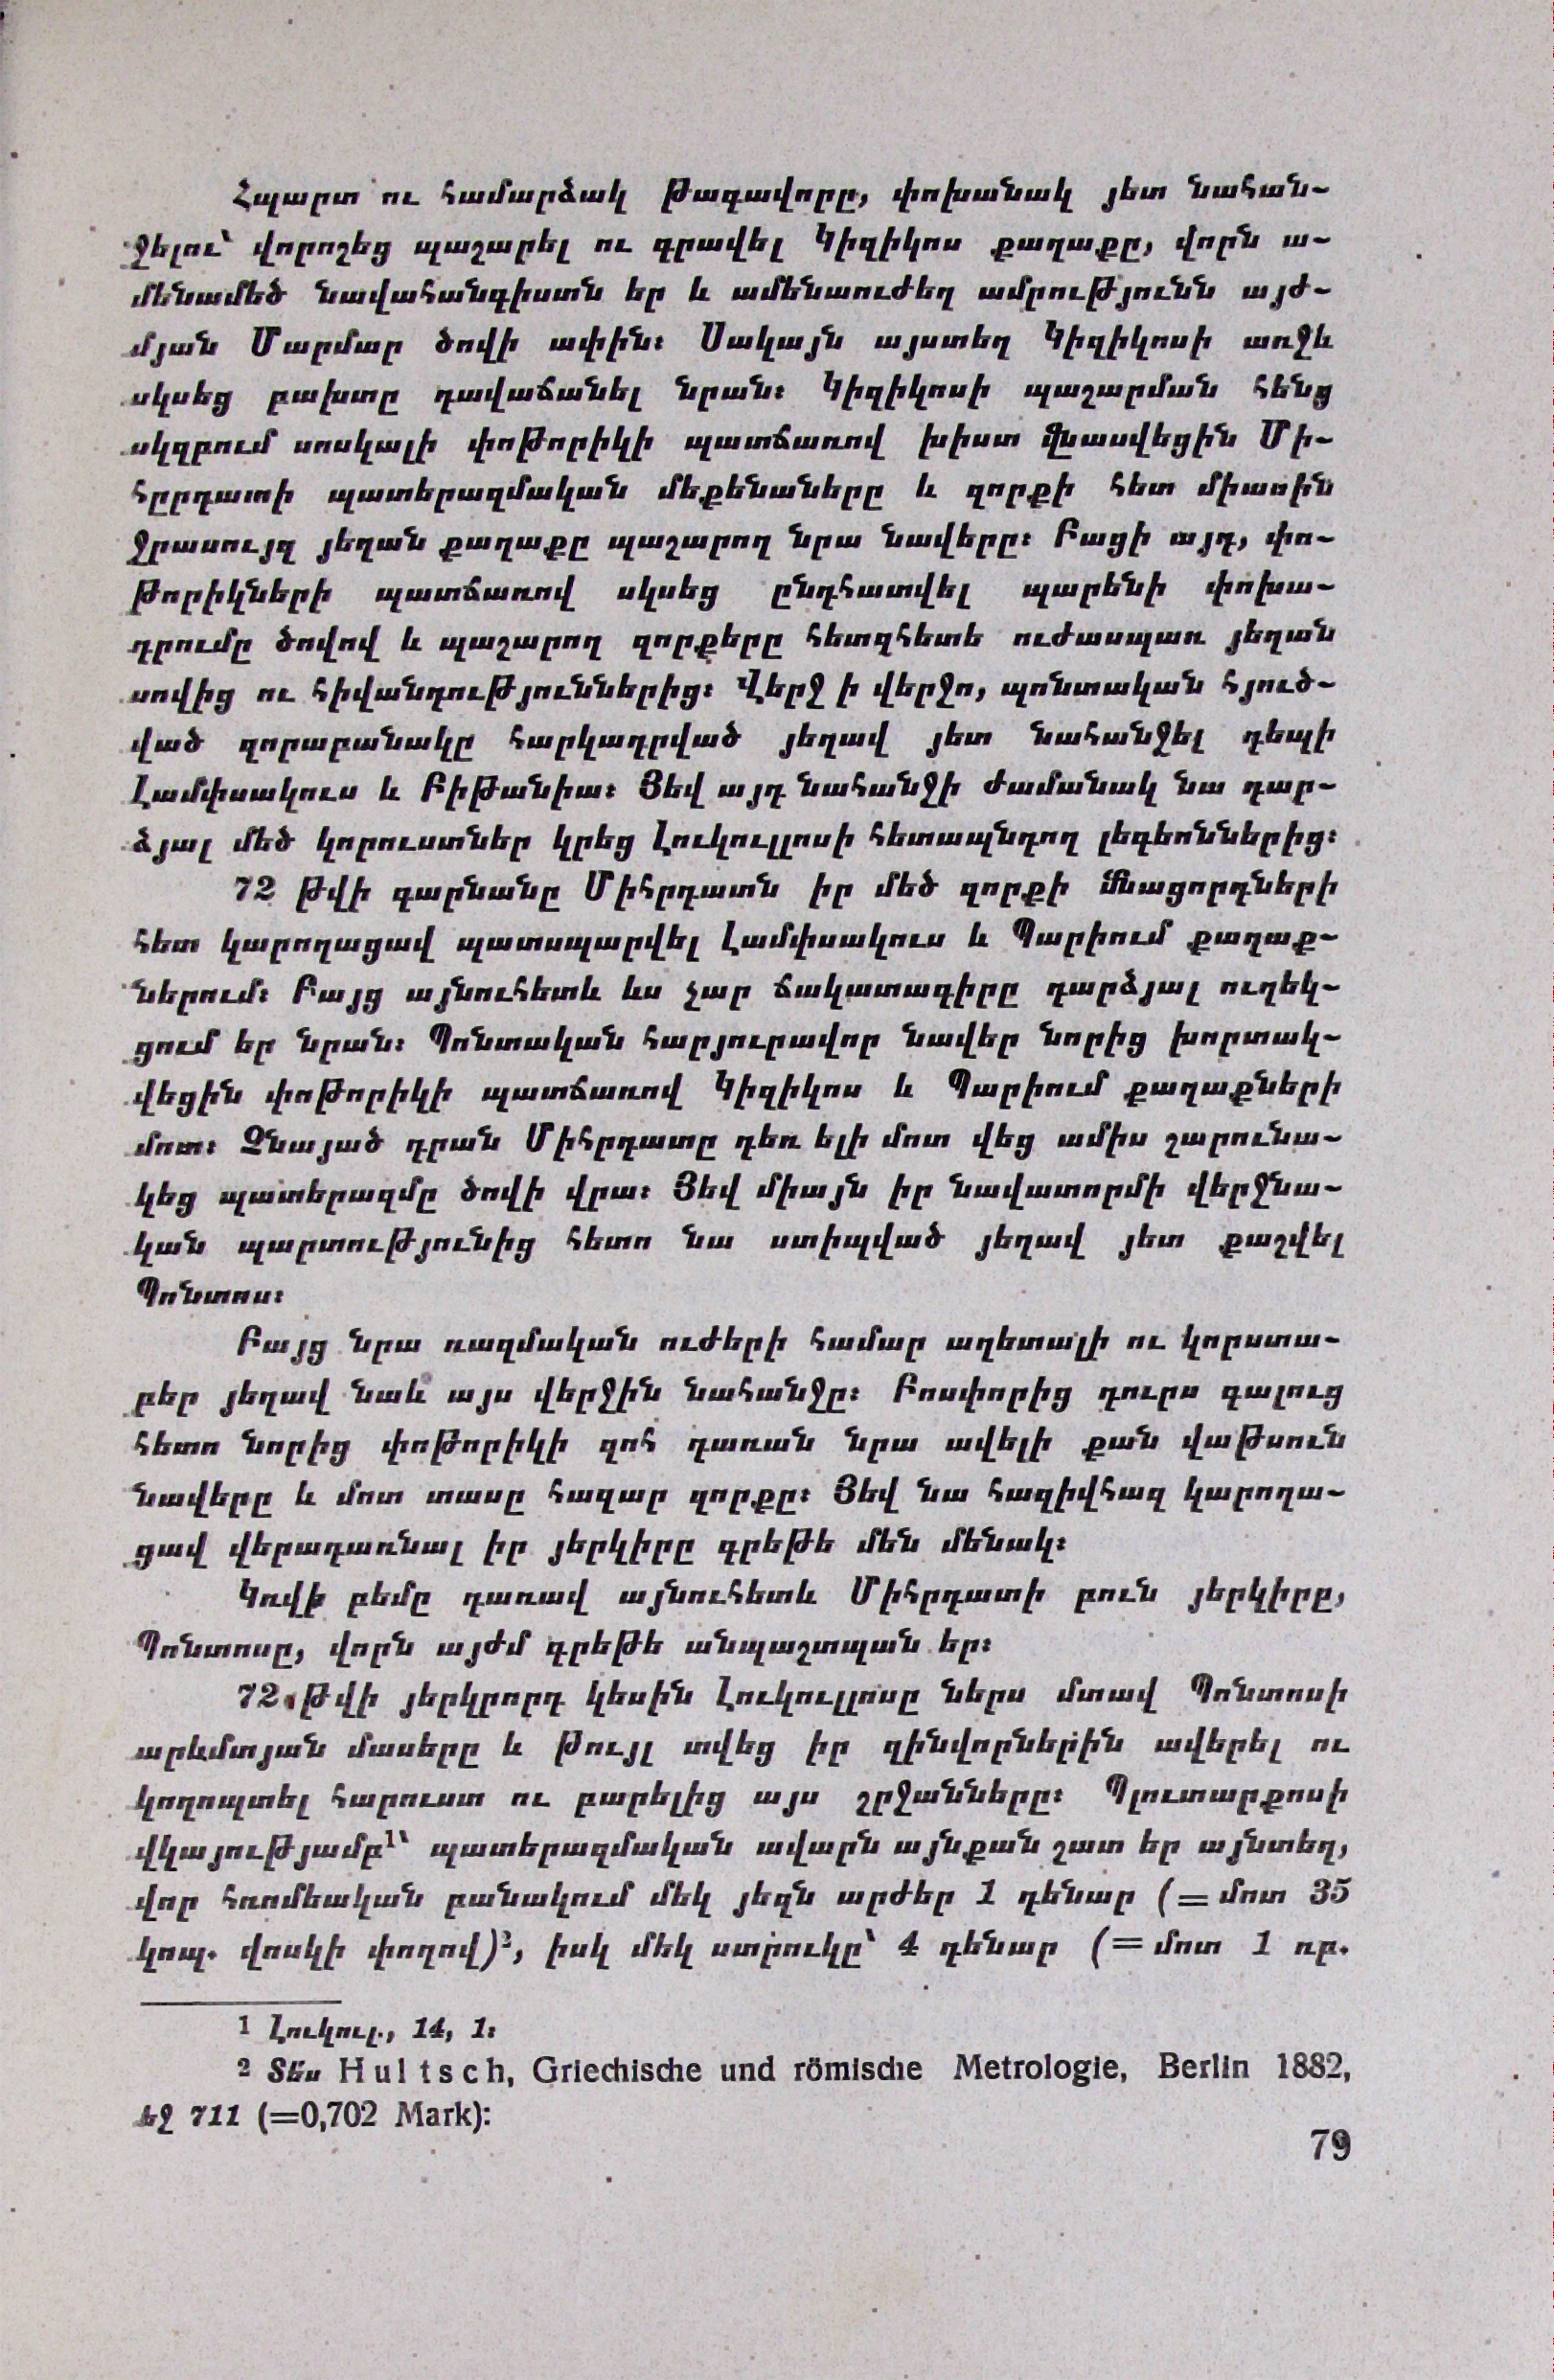 Հպարտ ու համարձակ թագավորը, փոխանակ յետ նահան-
ջելու՝ վորոշեց պաշարել ու գրավել Կիզիկոս քաղաքը, վորն ա-
մենամեծ նավահանգիստն եր և ամենաուժեղ ամրությունն այժ-
մյան Մարմար ծովի ափին։ Սակայն այստեղ Կիզիկոսի առջև
սկսեց բախտը դավաճանել նրան։ Կիզիկոսի պաշարման հենց
սկզբում սոսկալի փոթորիկի պատճառով խիստ վնասվեցին Մի-
հըրդատի պատերազմական մեքենաները և զորքի հետ միասին
ջրասույզ յեղան քաղաքը պաշարող նրա նավերը։ Բացի այդ, փո-
թորիկների պատճառով սկսեց ընդհատվել պարենի փոխա-
դրումը ծովով և պաշարող զորքերը հետզհետե ուժասպառ յեղան
սովից ու հիվանդություններից։ Վերջ ի վերջո, պոնտական հյուծ-
ված զորաբանակը հարկադրված յեղավ յետ նահանջել դեպի
Լամփսակուս և Բիթանիա։ Յեվ այդ նահանջի ժամանակ նա դար-
ձյալ մեծ կորուստներ կրեց Լուկուլլոսի հետապնդող լեգեոններից։
72 թվի գարնանը Միհրդատն իր մեծ զորքի մնացորդների
հետ կարողացավ պատսպարվել Լամփսակուս և Պարիում քաղաք-
ներում։ Բայց այնուհետև ևս չար ճակատագիրը դարձյալ ուղեկ-
ցում եր նրան։ Պոնտական հարյուրավոր նավեր նորից խորտակ-
վեցին փոթորիկի պատճառով Կիզիկոս և Պարիում քաղաքների
մոտ։ Չնայած դրան Միհրդատը դեռ ելի մոտ վեց ամիս շարունա-
կեց պատերազմը ծովի վրա։ Յեվ միայն իր նավատորմի վերջնա-
կան պարտությունից հետո նա ստիպված յեղավ յետ քաշվել
Պոնտոս։
Բայց նրա ռազմական ուժերի համար աղետալի ու կորստա-
բեր յեղավ նաև այս վերջին նահանջը։ Բոսփորից դուրս գալուց
հետո նորից փոթորիկի զոհ դառան նրա ավելի քան վաթսուն
նավերը և մոտ տասը հազար զորքը։ Յեվ նա հազիվհազ կարողա-
ցավ վերադառնալ իր յերկիրը գրեթե մեն մենակ։
Կռվի բեմը դառավ այնուհետև Միհրդատի բուն յերկիրը,
Պոնտոսը, վորն այժմ գրեթե անպաշտպան եր։
72 թվի յերկրորդ կեսին Լուկուլլոսը ներս մտավ Պոնտոսի
արևմտյան մասերը և թույլ տվեց իր զինվորներին ավերել ու
կողոպտել հարուստ ու բարելից այս շրջանները։ Պլուտարքոսի
վկայությամբ¹՝ պատերազմական ավարն այնքան շատ եր այնտեղ,
վոր հռոմեական բանակում մեկ յեզն արժեր 1 դենար (= մոտ 35
կոպ. վոսկի փողով)², իսկ մեկ ստրուկը՝ 4 դենար (= մոտ 1 ռբ.
1 Լուկուլ., 14, 1։
2 Տես Hultsch, Griechische und römische Metrologie, Berlin 1882,
եջ 711 (=0,702 Mark)։
79